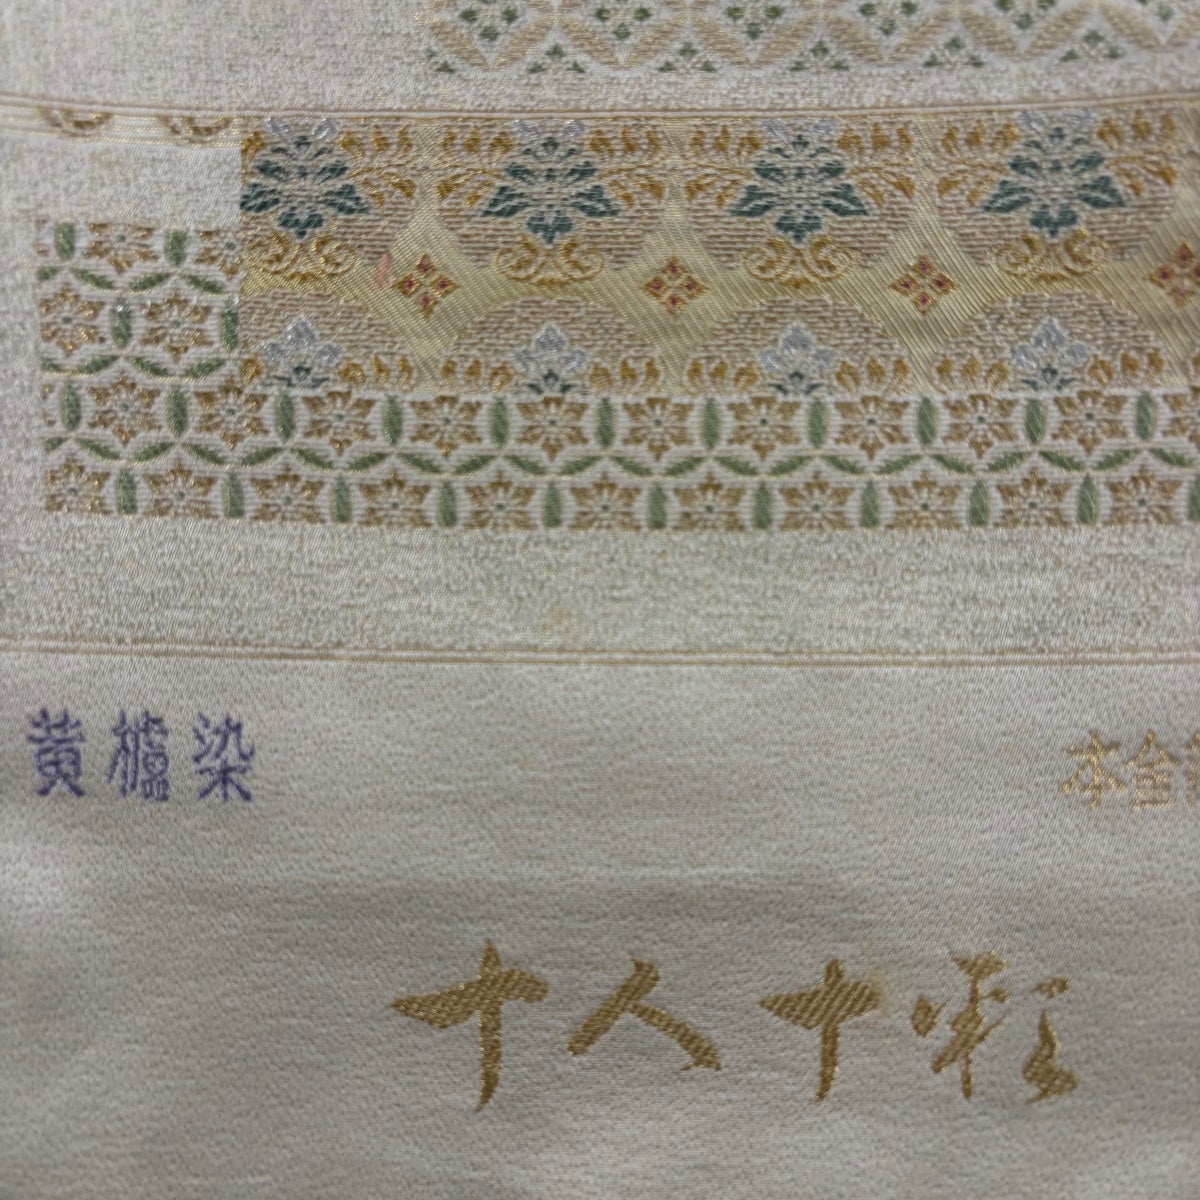 黄櫨染
本金
十人十